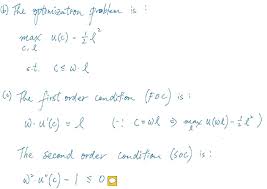 (b) The optimization problem is :
max u(c) - ½ l²
c, l
s.t. c ≤ w·l
(c) The first order condition (FOC) is :
w·u'(c) = l (∵ c = wl ⇒ max u(wl) - ½ l²)
l
The second order condition (SOC) is :
w² u''(c) - 1 ≤ 0